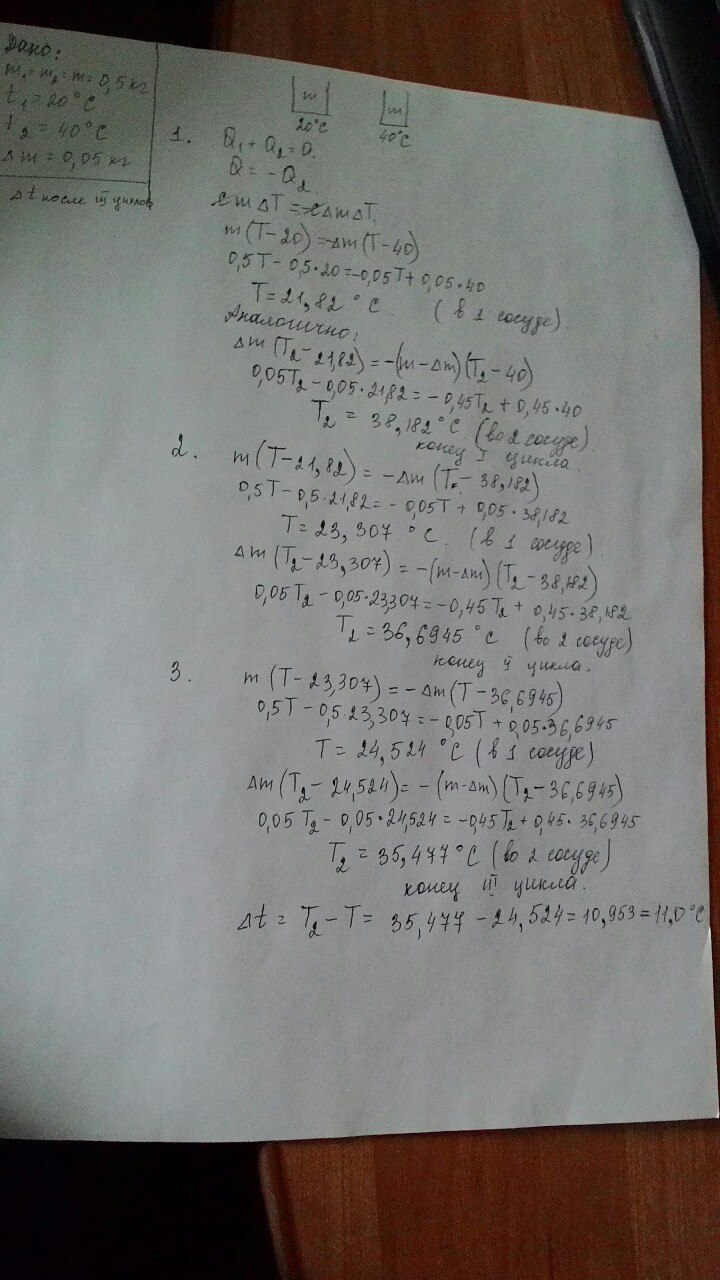 Дано:
m₁ = m₂ = m = 0,5 кг
t₁ = 20°C
t₂ = 40°C
Δm = 0,05 кг
Δt после III циклов
m
20°C
m
40°C
1. Q₁ + Q₂ = 0.
Q = -Q₂
cmΔT = -cΔmΔT.
m(T-20) = -Δm(T-40)
0,5T - 0,5·20 = -0,05T + 0,05·40
T = 21,82 °C. (в 1 сосуде).
Аналогично:
Δm(T₂-21,82) = -(m-Δm)(T₂-40)
0,05T₂ - 0,05·21,82 = -0,45T₂ + 0,45·40
T₂ = 38,182°C (во 2 сосуде)
конец I цикла.
2. m(T-21,82) = -Δm(T-38,182)
0,5T - 0,5·21,82 = -0,05T + 0,05·38,182
T = 23,307 °C. (в 1 сосуде).
Δm(T₂-23,307) = -(m-Δm)(T₂-38,182)
0,05T₂ - 0,05·23,307 = -0,45T₂ + 0,45·38,182
T₂ = 36,6945 °C (во 2 сосуде)
конец II цикла.
3. m(T-23,307) = -Δm(T-36,6945)
0,5T - 0,5·23,307 = -0,05T + 0,05·36,6945
T = 24,524 °C (в 1 сосуде)
Δm(T₂-24,524) = -(m-Δm)(T₂-36,6945)
0,05T₂ - 0,05·24,524 = -0,45T₂ + 0,45·36,6945
T₂ = 35,477°C (во 2 сосуде)
конец III цикла.
Δt = T₂ - T = 35,477 - 24,524 = 10,953 = 11,0°C